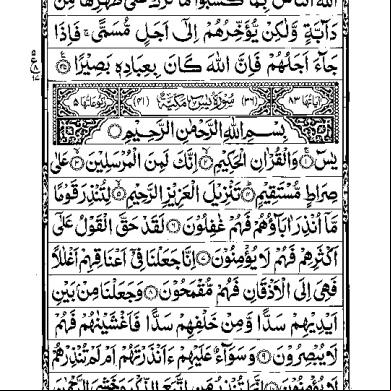 الله الناس بما كسبوا ما ترك على ظهرها من
دَآبَّةٍ وَّلٰكِنْ يُّؤَخِّرُهُمْ اِلٰٓى اَجَلٍ مُّسَمًّى ۚ فَاِذَا
جَآءَ اَجَلُهُمْ فَاِنَّ اللّٰهَ كَانَ بِعِبَادِهٖ بَصِيْرًا ۝۴۵
اٰيَاتُهَا ۸۳ (۳۶) سُوْرَةُ يٰسٓ مَكِّيَّةٌ (۴۱) رُكُوْعَاتُهَا ۵
بِسْمِ اللّٰهِ الرَّحْمٰنِ الرَّحِيْمِ
يٰسٓ ۝۱ وَالْقُرْاٰنِ الْحَكِيْمِ ۝۲ اِنَّكَ لَمِنَ الْمُرْسَلِيْنَ ۝۳ عَلٰى
صِرَاطٍ مُّسْتَقِيْمٍ ۝۴ تَنْزِيْلَ الْعَزِيْزِ الرَّحِيْمِ ۝۵ لِتُنْذِرَ قَوْمًا
مَّآ اُنْذِرَ اٰبَآؤُهُمْ فَهُمْ غٰفِلُوْنَ ۝۶ لَقَدْ حَقَّ الْقَوْلُ عَلٰٓى
اَكْثَرِهِمْ فَهُمْ لَا يُؤْمِنُوْنَ ۝۷ اِنَّا جَعَلْنَا فِيْٓ اَعْنَاقِهِمْ اَغْلٰلًا
فَهِيَ اِلَى الْاَذْقَانِ فَهُمْ مُّقْمَحُوْنَ ۝۸ وَجَعَلْنَا مِنْۢ بَيْنِ
اَيْدِيْهِمْ سَدًّا وَّمِنْ خَلْفِهِمْ سَدًّا فَاَغْشَيْنٰهُمْ فَهُمْ
لَا يُبْصِرُوْنَ ۝۹ وَسَوَآءٌ عَلَيْهِمْ ءَاَنْذَرْتَهُمْ اَمْ لَمْ تُنْذِرْهُمْ